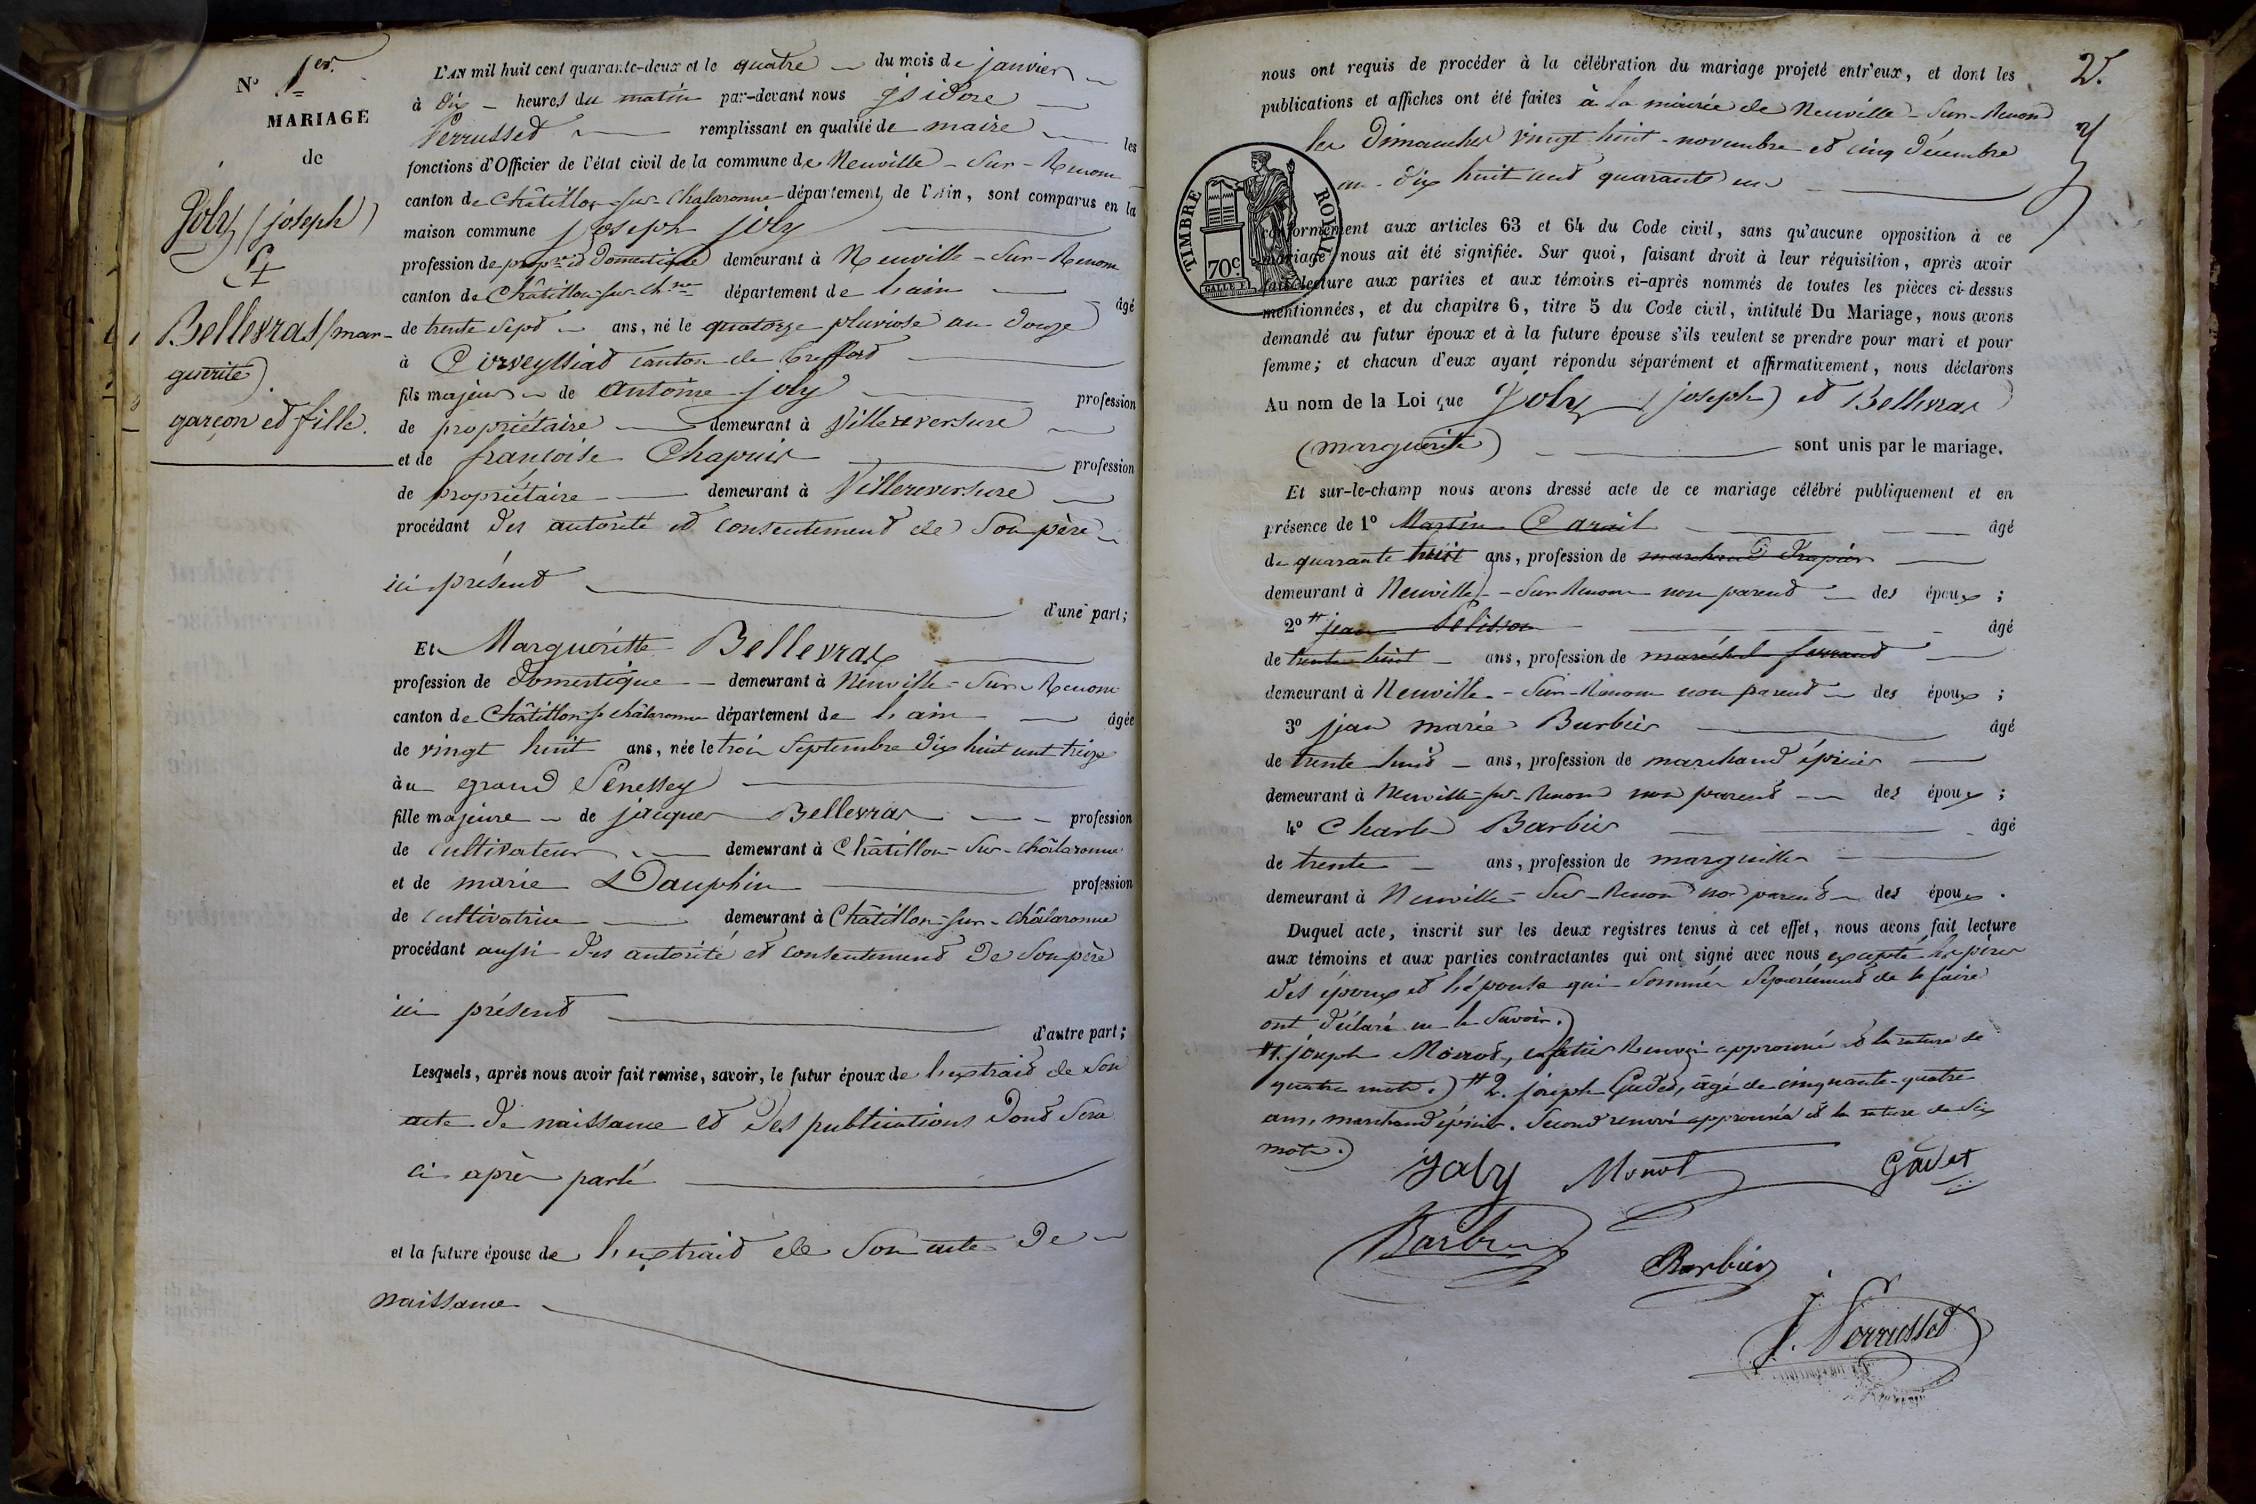 N° 1er.
MARIAGE
de
Joly (joseph)
Et
Bellevras (mar-
guerite)
garçon et fille.
L'AN mil huit cent quarante-deux et le quatre du mois de janvier
à dix heures du matin par-devant nous isidore
Perrusset remplissant en qualité de maire les
fonctions d'Officier de l'état civil de la commune de Neuville-Sur-Renom
canton de Châtillon-sur-Chalaronne département de l'Ain, sont comparus en la
maison commune joseph joly
profession de propre et domestique demeurant à Neuville-Sur-Renom
canton de Châtillon-sur-Chne département de l'ain âgé
de trente sept ans, né le quatorze pluviose an douze
à Corveyssiat canton de treffort
fils majeur de antoine joly profession
de propriétaire demeurant à Villereversure
et de francoise Chapuis profession
de propriétaire demeurant à Villereversure
procédant des autorité et consentement de son père
ici présent
d'une part;
Et Marguéritte Bellevras
profession de domestique demeurant à Neuville-Sur-Renom
canton de Châtillon-s-châlaronne département de l'ain âgée
de vingt huit ans, née le trois Septembre dix huit cent treize
au grand Senessey
fille majeure de jacques Bellevras profession
de cultivateur demeurant à Châtillon-Sur-châlaronne
et de marie Dauphin profession
de cultivatrice demeurant à Châtillon-sur-châlaronne
procédant aussi des autorité et consentement de son père
ici présent
d'autre part;
Lesquels, après nous avoir fait remise, savoir, le futur époux de l'extrait de son
acte de naissance et des publications dont sera
ci après parlé
et la future épouse de l'extrait de son acte de
naissance
2.
nous ont requis de procéder à la célébration du mariage projeté entr'eux, et dont les
publications et affiches ont été faites à la mairie de Neuville-Sur-Renom
les dimanches vingt huit novembre et cinq décembre
an dix huit cent quarante un
TIMBRE ROYAL
70c
conformément aux articles 63 et 64 du Code civil, sans qu'aucune opposition à ce
mariage nous ait été signifiée. Sur quoi, faisant droit à leur réquisition, après avoir
fait lecture aux parties et aux témoins ci-après nommés de toutes les pièces ci-dessus
mentionnées, et du chapitre 6, titre 5 du Code civil, intitulé Du Mariage, nous avons
demandé au futur époux et à la future épouse s'ils veulent se prendre pour mari et pour
femme; et chacun d'eux ayant répondu séparément et affirmativement, nous déclarons
Au nom de la Loi que Joly (joseph) et Bellevras
(marguerite) sont unis par le mariage.
Et sur-le-champ nous avons dressé acte de ce mariage célébré publiquement et en
présence de 1° Martin Carail âgé
de quarante huit ans, profession de marchand drapier
demeurant à Neuville-Sur-Renom non parent des époux;
2° jean Pelisson âgé
de trente huit ans, profession de maréchal ferrand
demeurant à Neuville-Sur-Renom non parent des époux;
3° jean marie Barbier âgé
de trente huit ans, profession de marchand épicier
demeurant à Neuville-sur-Renom non parent des époux;
4° Charles Barbier âgé
de trente ans, profession de marguiller
demeurant à Neuville-Sur-Renom non parent des époux.
Duquel acte, inscrit sur les deux registres tenus à cet effet, nous avons fait lecture
aux témoins et aux parties contractantes qui ont signé avec nous excepté les pères
des époux et l'épouse qui sommés séparément de le faire
ont déclaré ne le savoir.)
#1. joseph Monod, Renvoi approuvé et la rature de
quatre mots.) #2. joseph Gadet, âgé de cinquante-quatre
ans, marchand épicier. Second renvoi approuvé et la rature de six
mots.)
Joly Monod Gadet
Barbier
Barbier
J. Perrusset